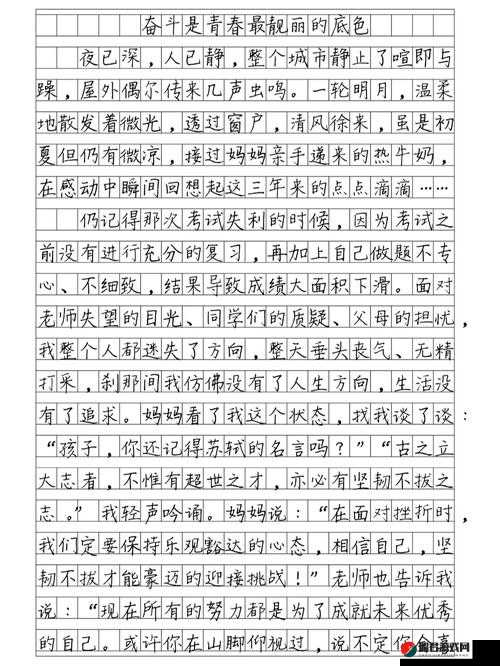 奋斗是青春最靓丽的底色
夜已深，人已静，整个城市静止了喧即与
躁，屋外偶尔传来几声虫鸣。一轮明月，温柔
地散发着微光，透过窗户，清风徐来，虽是初
夏但仍有微凉，接过妈妈亲手递来的热牛奶，
在感动中瞬间回想起这三年来的点点滴滴……
仍记得那次考试失利的时候，因为考试之
前没有进行充分的复习，再加上自己做题不专
心、不细致，结果导致成绩大面积下滑。面对
老师失望的目光、同学们的质疑、父母的担忧，
我整个人都迷失了方向，整天垂头丧气、无精
打采，刹那间我仿佛没有了人生方向，生活没
有了追求。妈妈看了我这个状态，找我谈了谈：
“孩子，你还记得苏轼的名言吗？”“古之立
大志者，不惟有超世之才，亦必有坚韧不拔之
志。”我轻声吟诵。妈妈说：“在面对挫折时，
我们定要保持乐观豁达的心态，相信自己，坚
韧不拔才能豪迈的迎接挑战！”老师也告诉我
说：“现在所有的努力都是为了成就未来优秀
的自己。或许你在山脚仰视过，说不定你会喜